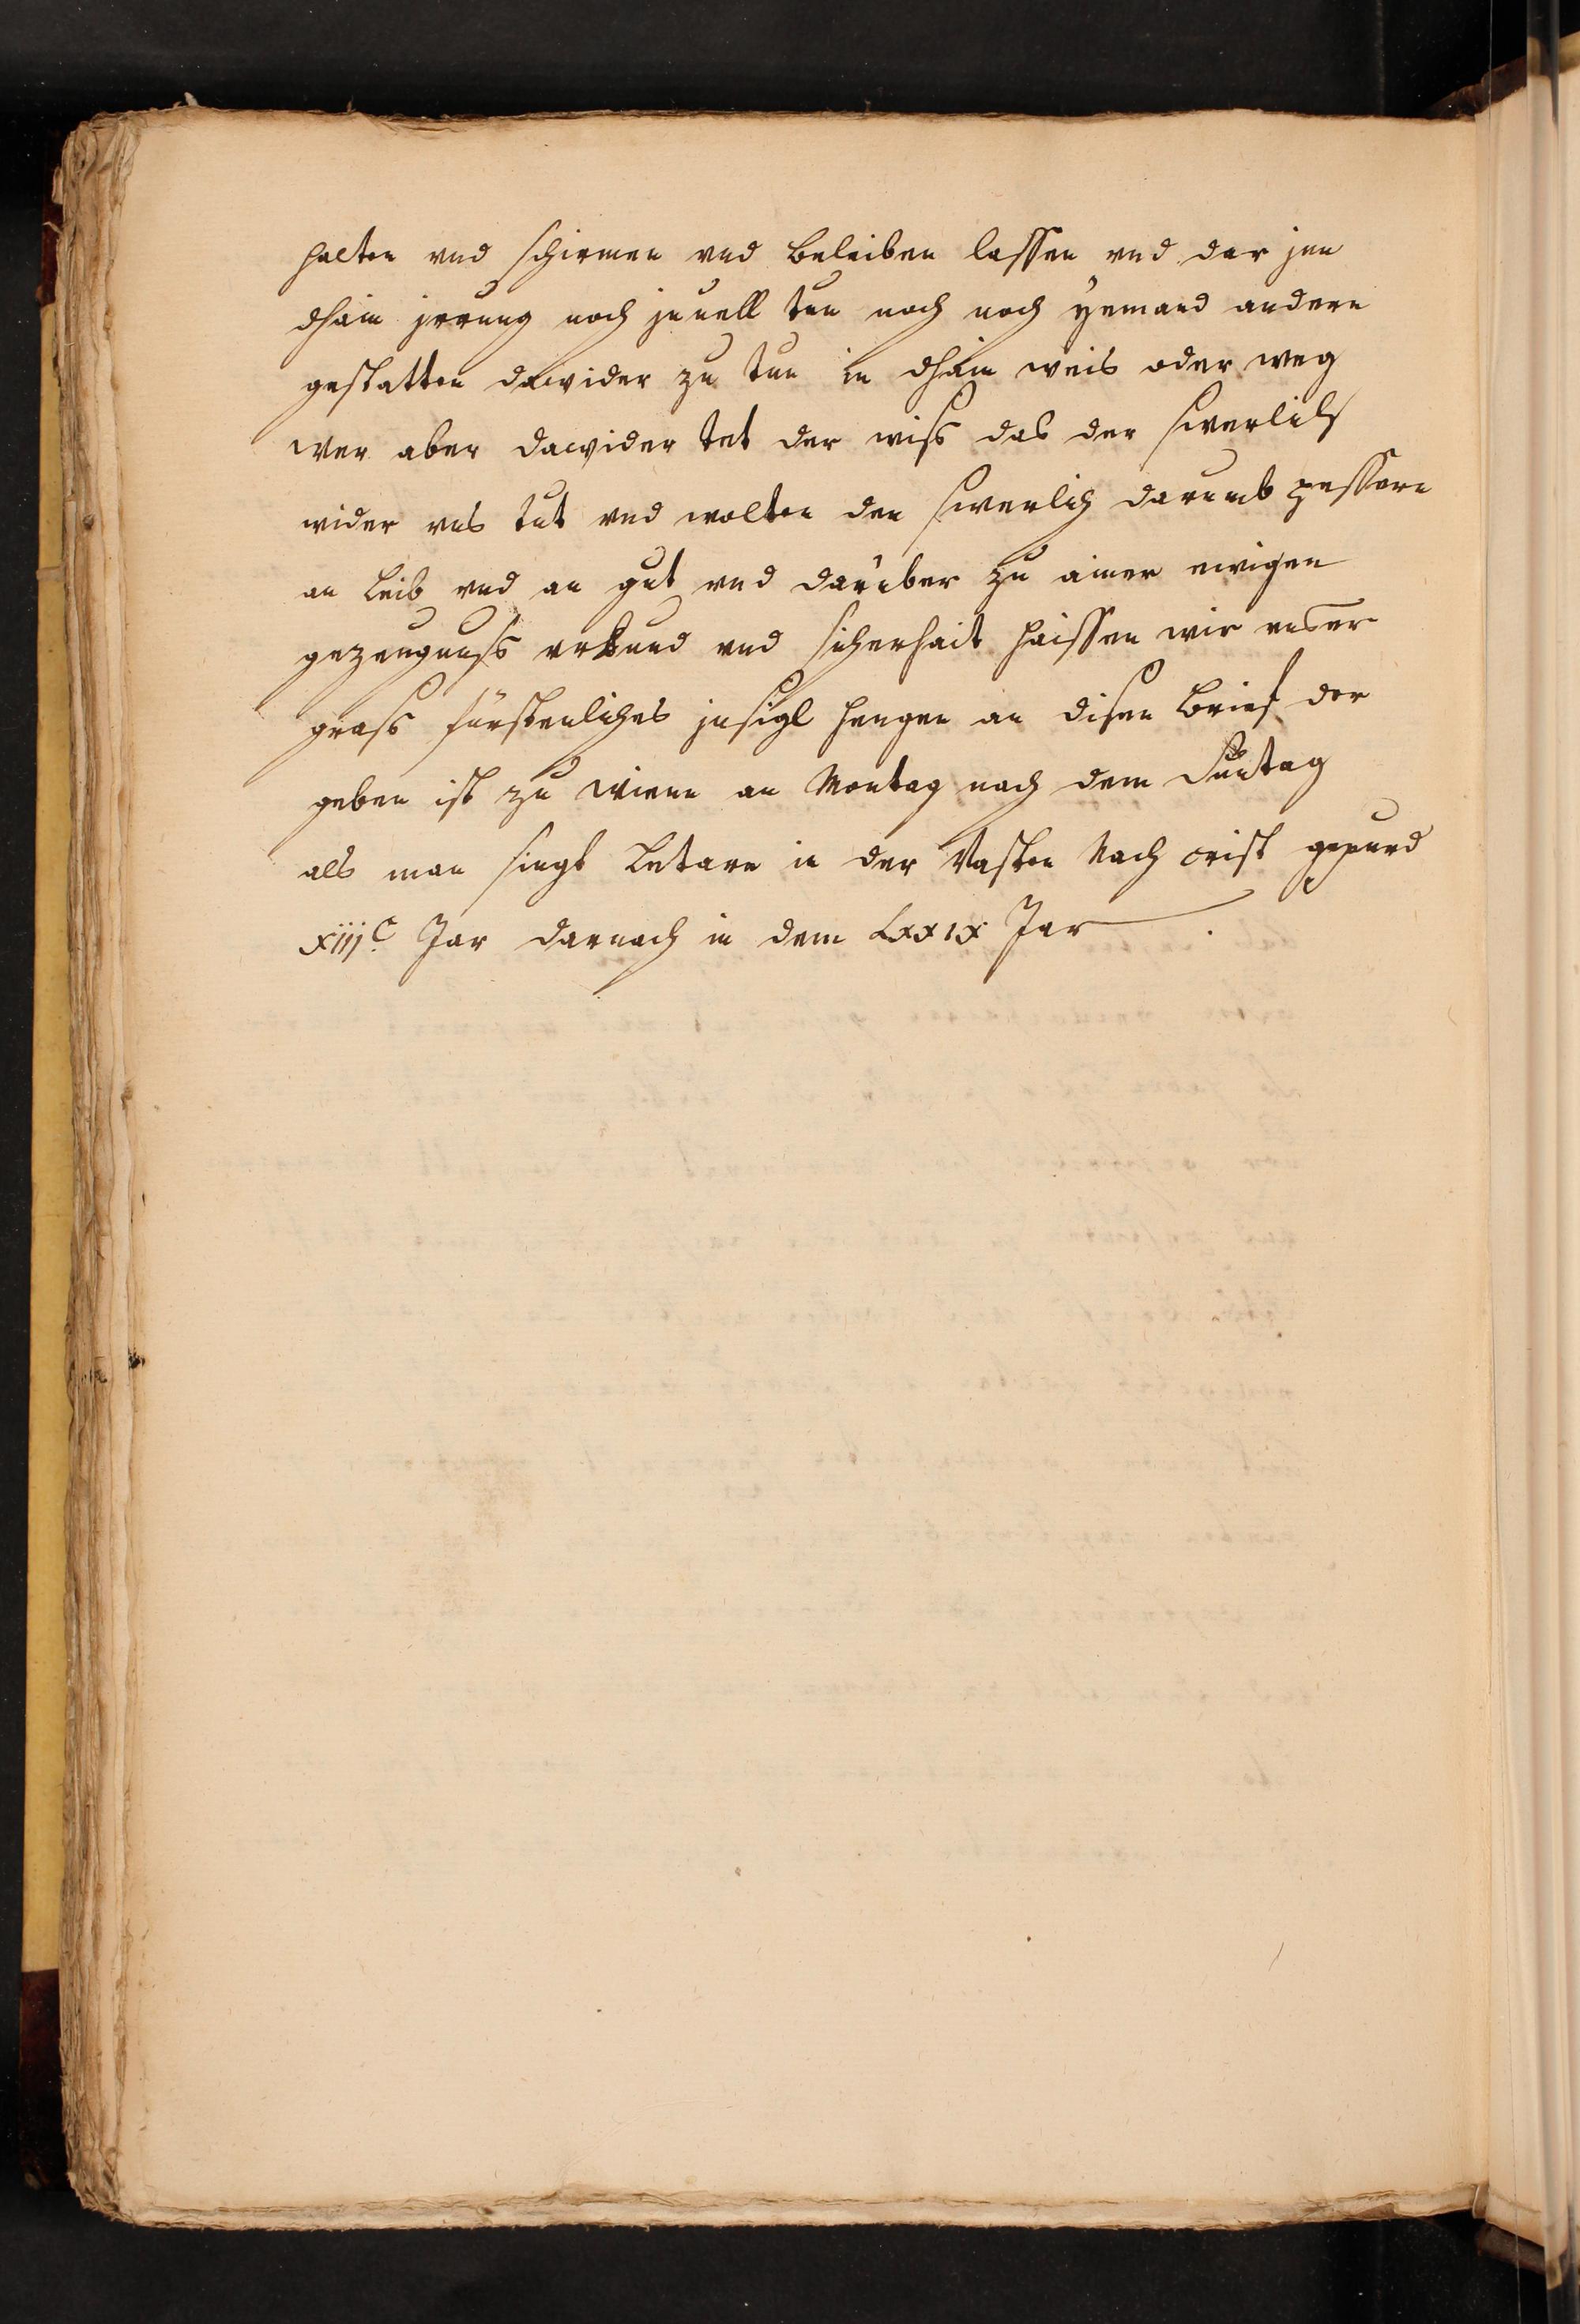 halten vnd schirmen vnd beleiben lassen vnd dar jnn
dhain jrrung noch jnuell tun noch noch yemand andern
gestatten dawider zu tun in dhain weis oder weg
wer aber dawider tet der wiss das der swerlich
wider vns tut vnd wolten den swerlich darumb pessern
an leib vnd an gut vnd darüber zu ainer ewigen
gezeugnuss vrkund vnd sicherhait haissen wir vnser
gross fürstenliches jnsigl hengen an disen brief der
geben ist zu wienn an Montag nach dem Suntag
als man singt Letare in der Vasten Nach crist gepurd
xiijC Jar darnach in dem Lxxix Jar